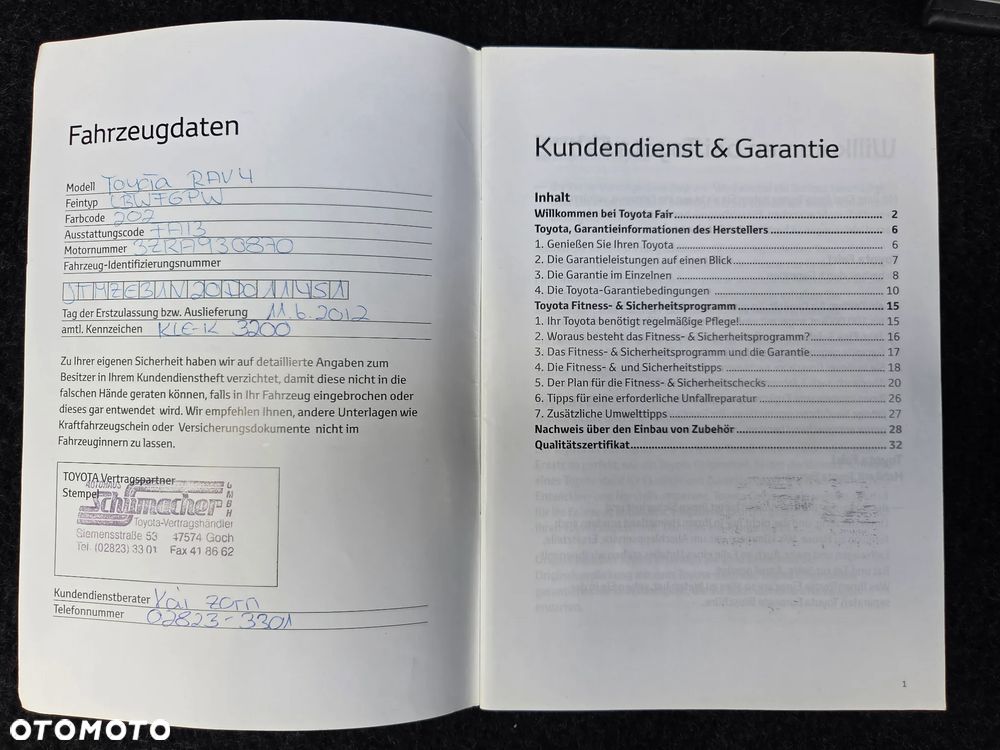 Fahrzeugdaten
Modell Toyota RAV4
Feintyp
Farbcode 202
Ausstattungscode
Motornummer
Fahrzeug-Identifizierungsnummer
Tag der Erstzulassung bzw. Auslieferung 11.6.2012
amtl. Kennzeichen KLE-K 3200
Zu Ihrer eigenen Sicherheit haben wir auf detaillierte Angaben zum
Besitzer in Ihrem Kundendienstheft verzichtet, damit diese nicht in die
falschen Hände geraten können, falls in Ihr Fahrzeug eingebrochen oder
dieses gar entwendet wird. Wir empfehlen Ihnen, andere Unterlagen wie
Kraftfahrzeugschein oder Versicherungsdokumente nicht im
Fahrzeuginnern zu lassen.
TOYOTA Vertragspartner
Stempel
AUTOHAUS
Schumacher GMBH
Toyota-Vertragshändler
Siemensstraße 53 47574 Goch
Tel. (02823) 33 01 Fax 41 86 62
Kundendienstberater Kai Zorn
Telefonnummer 02823-3301
Kundendienst & Garantie
Inhalt
Willkommen bei Toyota Fair 2
Toyota, Garantieinformationen des Herstellers 6
1. Genießen Sie Ihren Toyota 6
2. Die Garantieleistungen auf einen Blick 7
3. Die Garantie im Einzelnen 8
4. Die Toyota-Garantiebedingungen 10
Toyota Fitness- & Sicherheitsprogramm 15
1. Ihr Toyota benötigt regelmäßige Pflege! 15
2. Woraus besteht das Fitness- & Sicherheitsprogramm? 16
3. Das Fitness- & Sicherheitsprogramm und die Garantie 17
4. Die Fitness- & und Sicherheitstipps 18
5. Der Plan für die Fitness- & Sicherheitschecks 20
6. Tipps für eine erforderliche Unfallreparatur 26
7. Zusätzliche Umwelttipps 27
Nachweis über den Einbau von Zubehör 28
Qualitätszertifikat 32
1
OTOMOTO